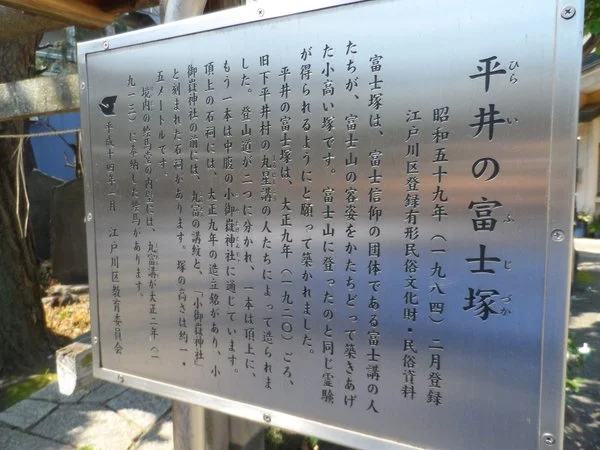 平井の富士塚
ひら い ふ じ づか
昭和五十九年(一九八四)二月登録
江戸川区登録有形民俗文化財・民俗資料
富士塚は、富士信仰の団体である富士講の人
たちが、富士山の容姿をかたちどって築きあげ
た小高い塚です。富士山に登ったのと同じ霊験
が得られるようにと願って築かれました。
平井の富士塚は、大正九年(一九二〇)ごろ、
旧下平井村の丸富講の人たちによって造られま
した。登山道が二つに分かれ、一本は頂上に、
もう一本は中腹の小御嶽神社に通じています。
頂上の石祠には、大正九年の造立銘があり、小
御嶽神社の前には、丸富の講紋と、「小御嶽神社」
と刻まれた石祠があります。塚の高さは約一・
五メートルです。
境内の絵馬堂の内壁には、丸富講が大正二年(一
九一三)に奉納した絵馬があります。
平成十四年二月 江戸川区教育委員会